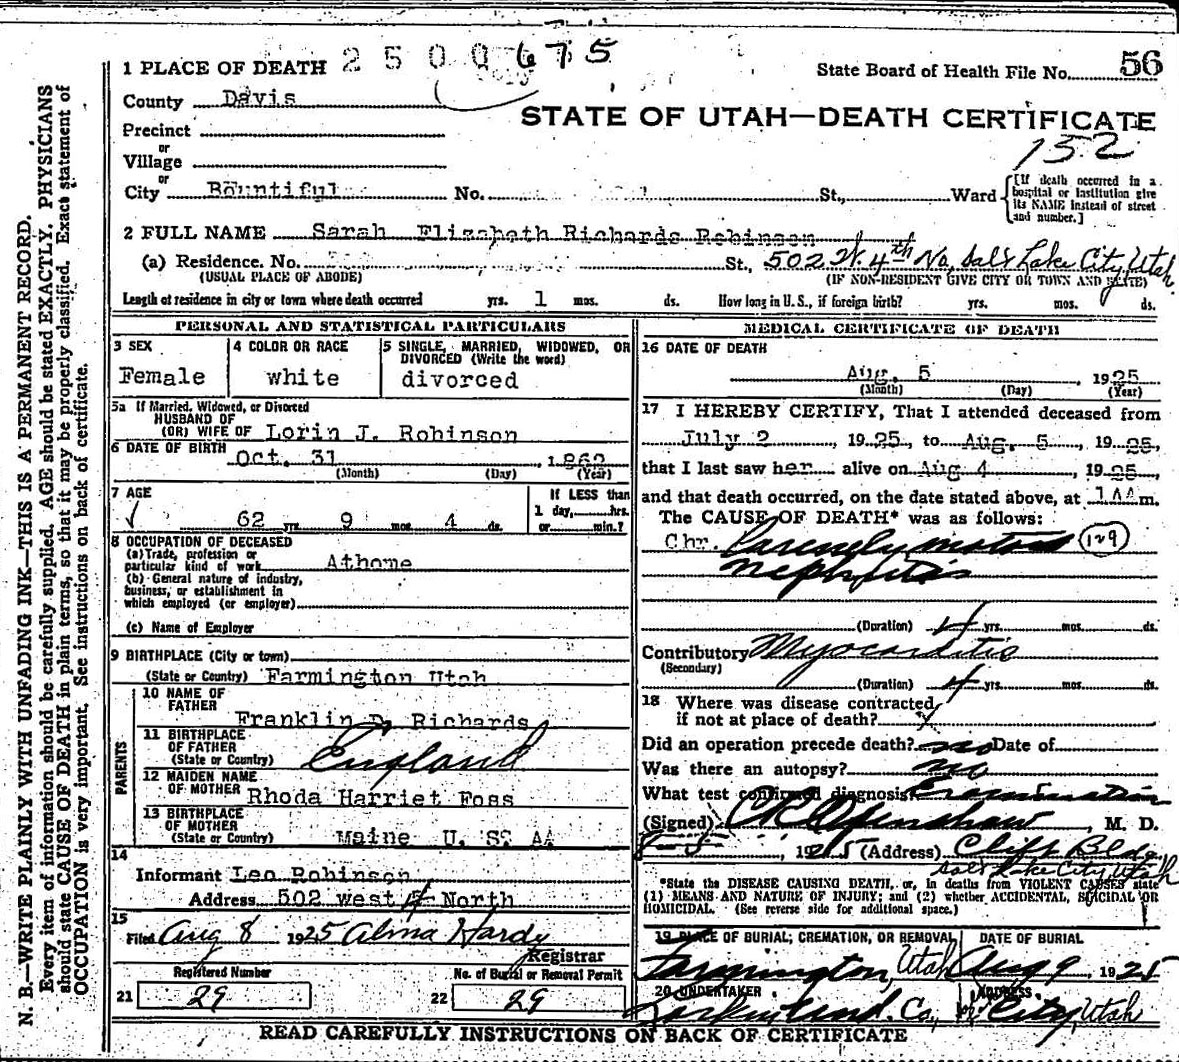 N. B.—WRITE PLAINLY WITH UNFADING INK—THIS IS A PERMANENT RECORD.
Every item of information should be carefully supplied. AGE should be stated EXACTLY. PHYSICIANS
should state CAUSE OF DEATH in plain terms, so that it may be properly classified. Exact statement of
OCCUPATION is very important. See instructions on back of certificate.
1 PLACE OF DEATH 2 5 0 0 6 7 5
State Board of Health File No. 56
County Davis
STATE OF UTAH—DEATH CERTIFICATE
Precinct
152
or
Village
or
City Bountiful No. St., Ward
[If death occurred in a
hospital or institution give
its NAME instead of street
and number.]
2 FULL NAME Sarah Elizabeth Richards Robinson
(a) Residence. No. St., 502 W. 4th No, Salt Lake City, Utah
(USUAL PLACE OF ABODE) (IF NON-RESIDENT GIVE CITY OR TOWN AND STATE)
Length of residence in city or town where death occurred yrs. 1 mos. ds. How long in U. S., if foreign birth? yrs. mos. ds.
PERSONAL AND STATISTICAL PARTICULARS
3 SEX
Female
4 COLOR OR RACE
white
5 SINGLE, MARRIED, WIDOWED, OR
DIVORCED (Write the word)
divorced
5a If Married, Widowed, or Divorced
HUSBAND OF
(OR) WIFE OF Lorin J. Robinson
6 DATE OF BIRTH Oct. 31, 1862
(Month) (Day) (Year)
7 AGE
62 yrs 9 mos 4 ds.
If LESS than
1 day, hrs.
or min.?
8 OCCUPATION OF DECEASED
(a) Trade, profession or
particular kind of work Athome
(b) General nature of industry,
business, or establishment in
which employed (or employer)
(c) Name of Employer
9 BIRTHPLACE (City or town)
(State or Country) Farmington Utah
PARENTS
10 NAME OF
FATHER
Franklin D. Richards
11 BIRTHPLACE
OF FATHER
(State or Country) England
12 MAIDEN NAME
OF MOTHER Rhoda Harriet Foss
13 BIRTHPLACE
OF MOTHER
(State or Country) Maine U. S. AA
14
Informant Leo Robinson
Address 502 west 4 North
15
Filed Aug 8 1925 Alma Hardy
Registrar
Registered Number No. of Burial or Removal Permit
21 29 22 29
MEDICAL CERTIFICATE OF DEATH
16 DATE OF DEATH
Aug. 5, 1925
(Month) (Day) (Year)
17 I HEREBY CERTIFY, That I attended deceased from
July 2, 1925, to Aug. 5, 1925,
that I last saw her alive on Aug 4, 1925,
and that death occurred, on the date stated above, at 1AA m.
The CAUSE OF DEATH* was as follows:
Chr. 129
nephritis
(Duration) 4 yrs. mos. ds.
Contributory Myocarditis
(Secondary)
(Duration) 4 yrs. mos. ds.
18 Where was disease contracted,
if not at place of death?
Did an operation precede death? no Date of
Was there an autopsy? no
What test confirmed diagnosis? Examination
(Signed) Openshaw, M. D.
8-5, 1925 (Address) Clift Bldg
Salt Lake City, Utah
*State the DISEASE CAUSING DEATH, or, in deaths from VIOLENT CAUSES state
(1) MEANS AND NATURE OF INJURY; and (2) whether ACCIDENTAL, SUICIDAL OR
HOMICIDAL. (See reverse side for additional space.)
19 PLACE OF BURIAL; CREMATION, OR REMOVAL DATE OF BURIAL
Farmington, Utah Aug 9, 1925
20 UNDERTAKER ADDRESS
Co, City, Utah
READ CAREFULLY INSTRUCTIONS ON BACK OF CERTIFICATE